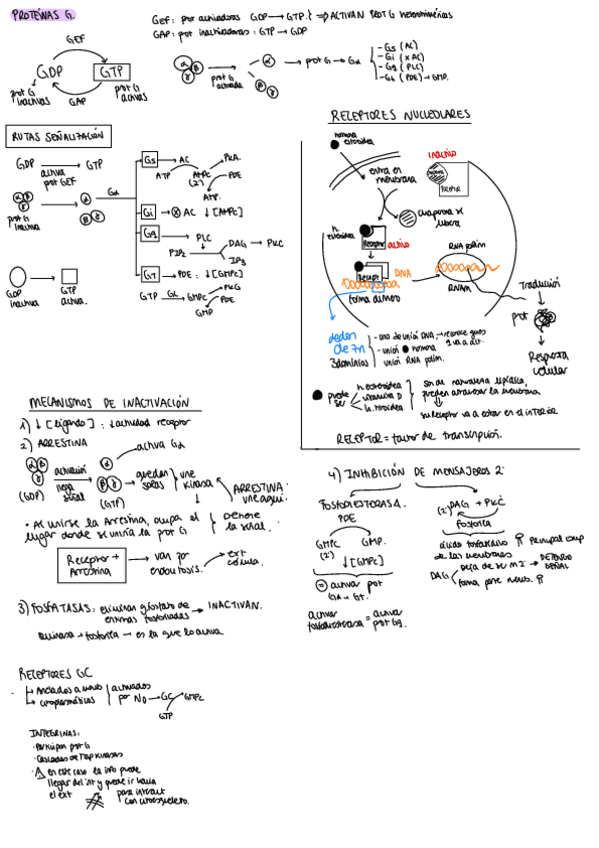 PROTEÍNAS G.
GEF: prot activadoras GDP → GTP. ⇒ ACTIVAN PROT G heterotriméricas
GAP: prot inactivadoras: GTP → GDP
GEF
GDP
GTP
GAP
prot G inactivas
prot G activas
α β γ
prot G activada
α
β γ
prot G → Gα
- Gs (AC)
- Gi (x AC)
- Gq (PLC)
- Gt (PDE) → GMP.
RUTAS SEÑALIZACIÓN
GDP → GTP
activa
prot GEF
α β γ
prot G inactiva
α
β γ
Gα
Gs → AC
PKA.
ATP
AMPc
(2)
PDE
ATP.
Gi → x AC ↓ [AMPc]
Gq
PLC
PIP2
DAG → PKC
IP3
GT → PDE: ↓ [GMPc]
GTP GC GMPc
PKG
PDE
GMP
GDP inactiva
GTP activa.
RECEPTORES NUCLEOLARES
hormona esteroidea
inactivo
entra en membrana
receptor
chaperona se libera
h. esteroidea
Receptor
activo
Recept
DNA
forma dímero
RNA polim
RNAm
Traducción
prot
Respuesta celular
dedos de Zn
3 dominios
- uno de unión DNA, → reconoce genes
q va a act.
- unión hormona
unión RNA polim.
puede ser
h. esteroidea
vitamina D
h. tiroidea
son de naturaleza lipídica,
pueden atravesar la membrana
su receptor va a estar en el interior
RECEPTOR = factor de transcripción.
MECANISMOS DE INACTIVACIÓN
1) ↓ [ligando]: ↓ actividad receptor
2) ARRESTINA
activa Gα
α β γ
(GDP)
activación
llega señal
α β γ
(GTP)
quedan solas
une kinasa
ARRESTINA
une aquí.
• Al unirse la Arrestina, ocupa el
lugar donde se uniría la prot G
Detiene la señal.
Receptor + Arrestina
van por endocitosis.
ext célula.
3) FOSFATASAS: eliminan fosfato de enzimas fosforiladas → INACTIVAN.
Quinasa → fosforila → es la que lo activa.
4) INHIBICIÓN DE MENSAJEROS 2
FOSFODIESTERASA.
PDE
GMPc
(2)
GMP.
↓ [GMPc]
= activar prot
Gα - Gt.
activar fosfodiesterasa = activar prot Gq.
(2) DAG + PKC
fosforila
ácido fosfatídico
principal comp
de las membranas
DAG
Deja de ser m 2
DETENGO SEÑAL
forma parte
RECEPTORES GC
↦ Anclados a memb
↦ citoplasmáticos
activados por NO → GC
GMPc
GTP
INTEGRINAS:
• Participan prot G
• Cascadas de Map kinasas
• en este caso la info puede
llegar del int y puede ir hacia
el ext
para interact
con citoesqueleto.